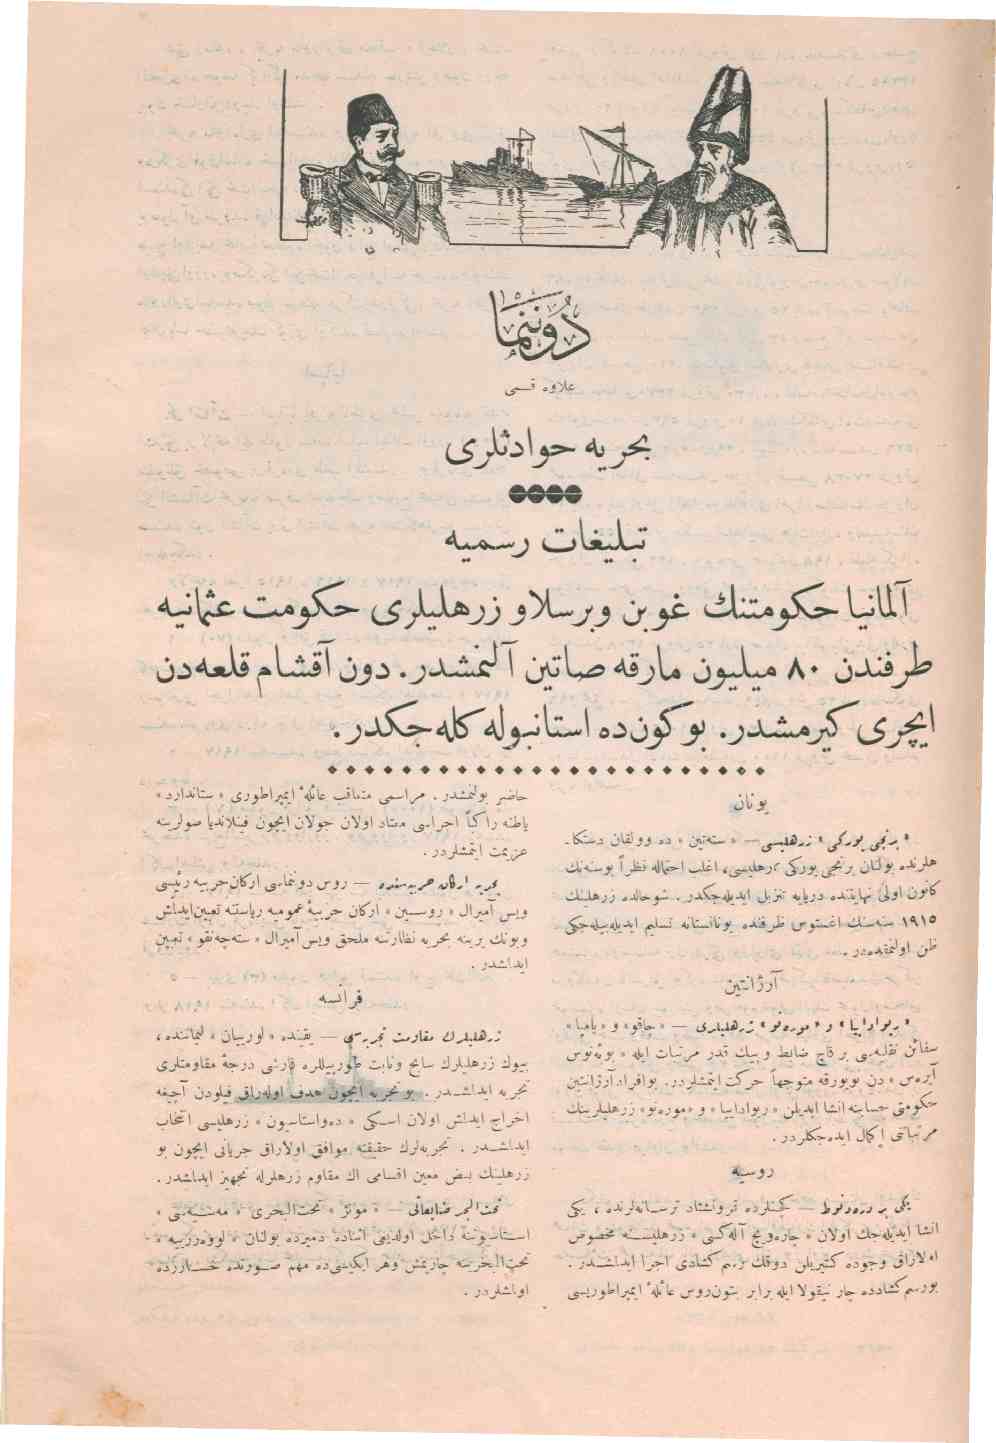 دوننما
علاوه قسمی
بحریه حوادثلری
تبلیغات رسمیه
آلمانیا حکومتنك غوبن وبرسلاو زرهلیلری حکومت عثمانیه
طرفندن ٨٠ میلیون مارقه صاتین آلنمشدر. دون آقشام قلعه‌دن
ایچری کیرمشدر. بو کون‌ده استانبوله کله‌جکدر.
یونان
« برنجی یورکی » زرهلیسی — « سته‌تین » ده وولقان دستکا-
هلرنده بولنان برنجی یورکی زرهلیسی، اغلب احتماله نظراً بوسنه‌نك
کانون اولی نهایتنده دریایه تنزیل ایدیله‌جکدر. شوحالده زرهلینك
١٩١٥ سنه‌سنك اغستوس ظرفنده یونانستانه تسلیم ایدیله‌بیله‌جکی
ظن اولنمقده‌در.
آرژانتین
« ریواداییا » و « موره‌نو » زرهلیلری — « چاقو » و « پامپا »
سفائن نقلیه‌سی بر قاچ ضابط و بیك قدر مرتبات ایله « بوئه‌نوس
آیره‌س » دن نویورقه متوجهاً حرکت ایتمشلردر. بوافراد آرژانتین
حکومتی حسابنه انشا ایدیلن « ریواداییا » و « موره‌نو » زرهلیلرینك
مرتباتنی اکمال ایده‌جکلردر.
روسیه
یکی بر دره‌دنوط — کچنلرده قرونشتاد ترسانه‌لرنده ، یکی
انشا ایدیله‌جك اولان « چاره‌ویچ آله‌کسی » زرهلیسنه مخصوص
اولاراق وجوده کتیریلن دوقك رسم کشادی اجرا ایدلمشدر.
بورسم کشادده چار نیقولا ایله برابر بتون روس عائلهٔ ایمپراطوریسی
حاضر بولنمشدر . مراسمی متعاقب عائلهٔ ایمپراطوری « ستاندارد »
یاطنه راکباً اجراسی معتاد اولان جولان ایچون فینلاندیا صولرینه
عزیمت ایتمشلردر.
بحریه ارکان حربیه‌سنده — روس دوننماسی ارکان‌حربیه رئیسی
ویس آمیرال « روسین » ارکان حربیهٔ عمومیه ریاستنه تعیین‌ایدلمش
وبونك یرینه بحریه نظارتنه ملحق ویس آمیرال « سته‌چه‌نقو » تعیین
ایدلمشدر.
فرانسه
زرهلیلرك مقاومت تجربه‌سی — یقینده « لوریان » لیماننده ،
بیوك زرهلیلرك سابح وثابت طورپیللره قارشی درجهٔ مقاومتلری
تجربه ایدلمشدر. بو تجربه ایچون هدف اوله‌راق فیلودن آچیغه
اخراج ایدلمش اولان اسکی « ده‌واستاسیون » زرهلیسی انتخاب
ایدلمشدر . تجربه‌لرك حقیقته موافق اولاراق جریانی ایچون بو
زرهلینك بعض معین اقسامی اك مقاوم زرهلرله تجهیز ایدلمشدر.
تحت‌البحر ضایعاتی — « مونژ » تحت‌البحری «
استاسیوننه داخل اولدیغی اثناده دمیرده بولنان «
تحت‌البحرینه چارپمش وهر ایکیسی‌ده مهم صورتده خساره‌زده
اولمشلردر.